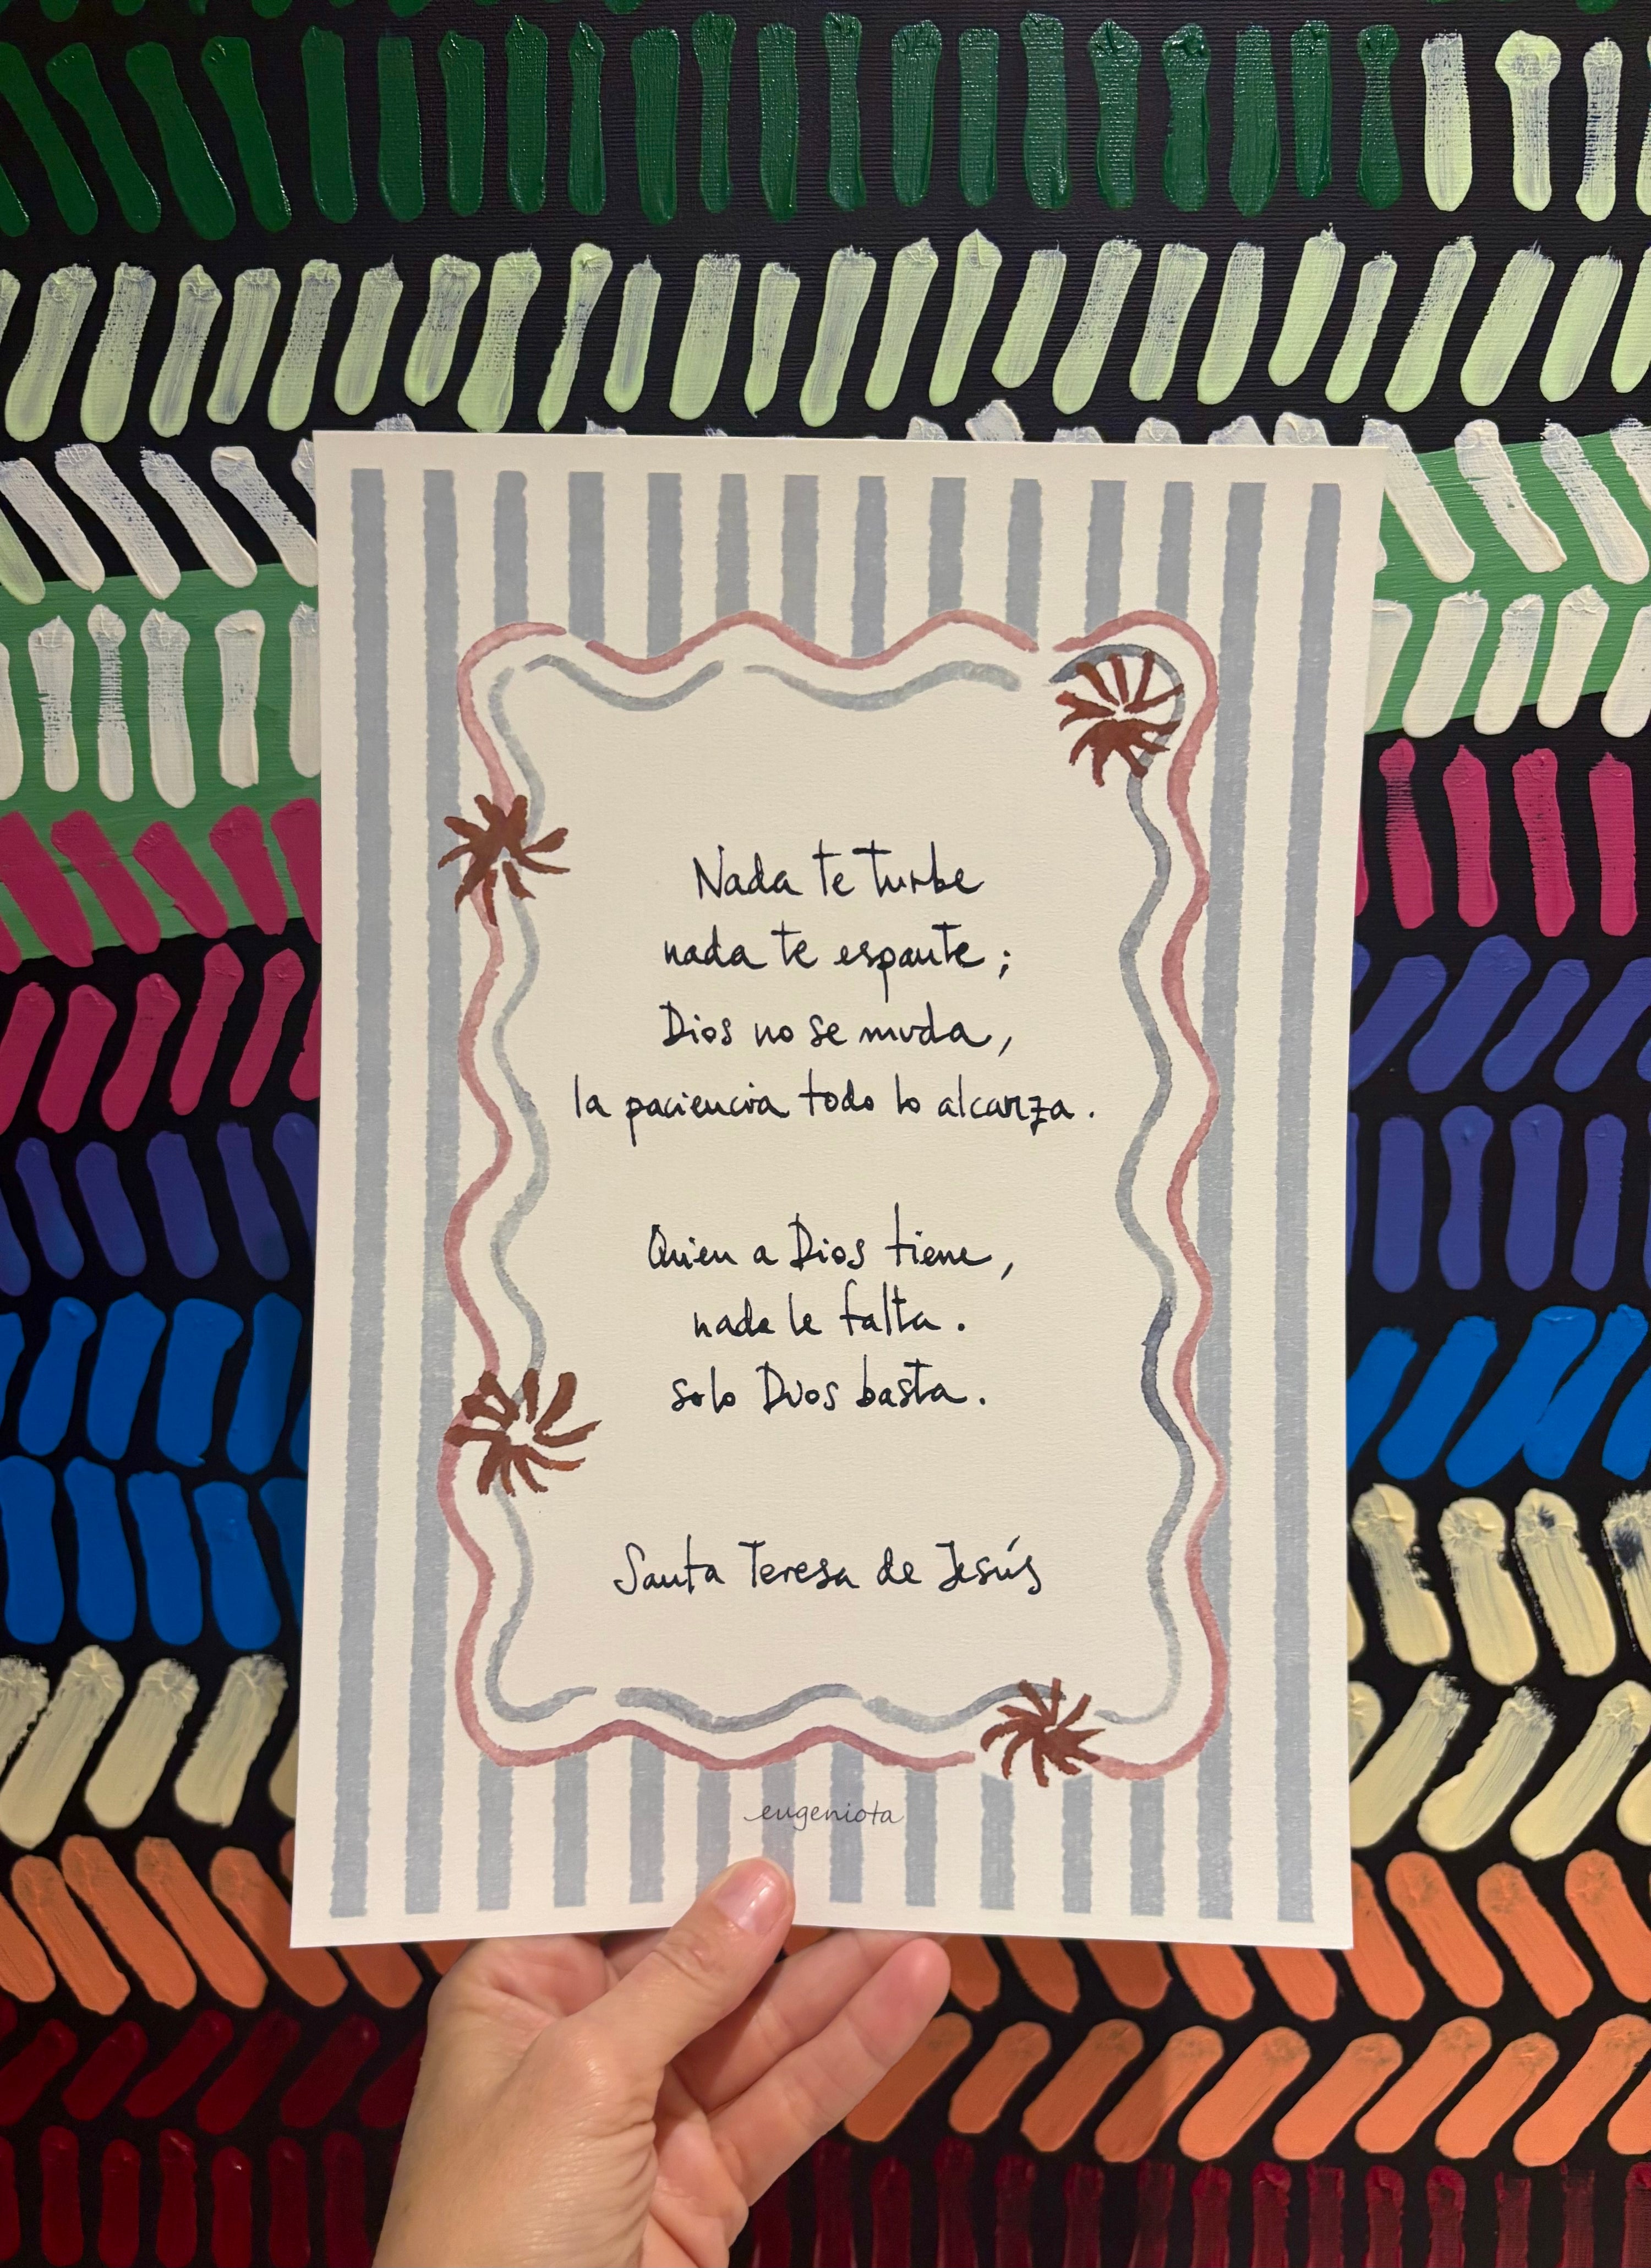 Nada te turbe
nada te espante;
Dios no se muda,
la paciencia todo lo alcanza.
Quien a Dios tiene,
nada le falta.
solo Dios basta.
Santa Teresa de Jesús
eugeniota